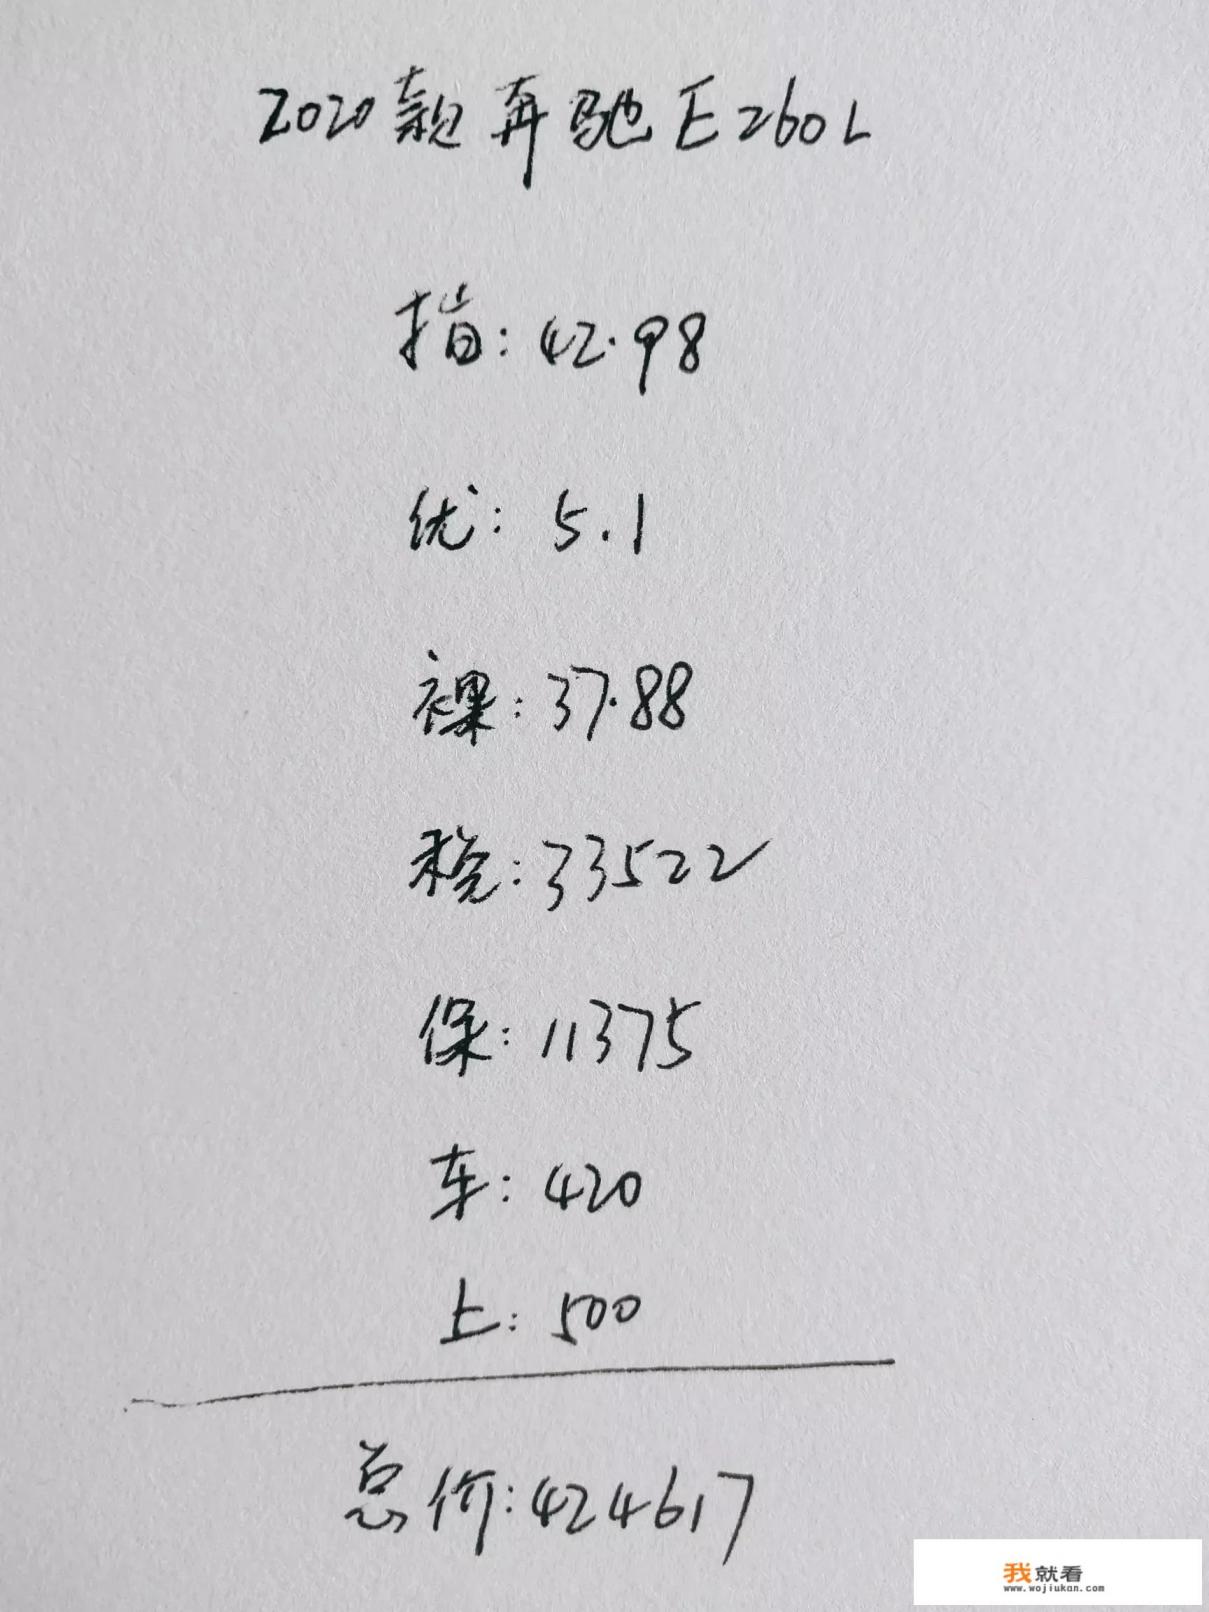 2020款奔驰E260L
指:42.98
优:5.1
裸:37.88
税:33522
保:11375
车:420
上:500
总价:424617
我就看
www.wojiukan.com